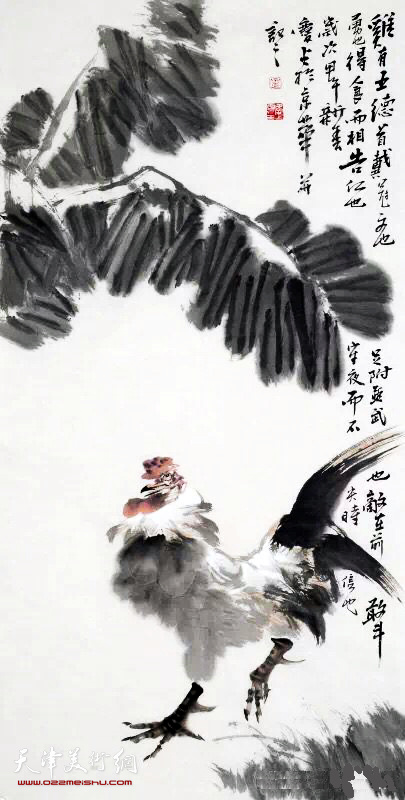 雞有五德首戴冠文也
足附距武
也敵在前
敢斗
勇也得食而相告仁也
守夜而不
失時
信也
歲次甲午新春
於京華 并
記之
天津美術網
www.022meishu.com